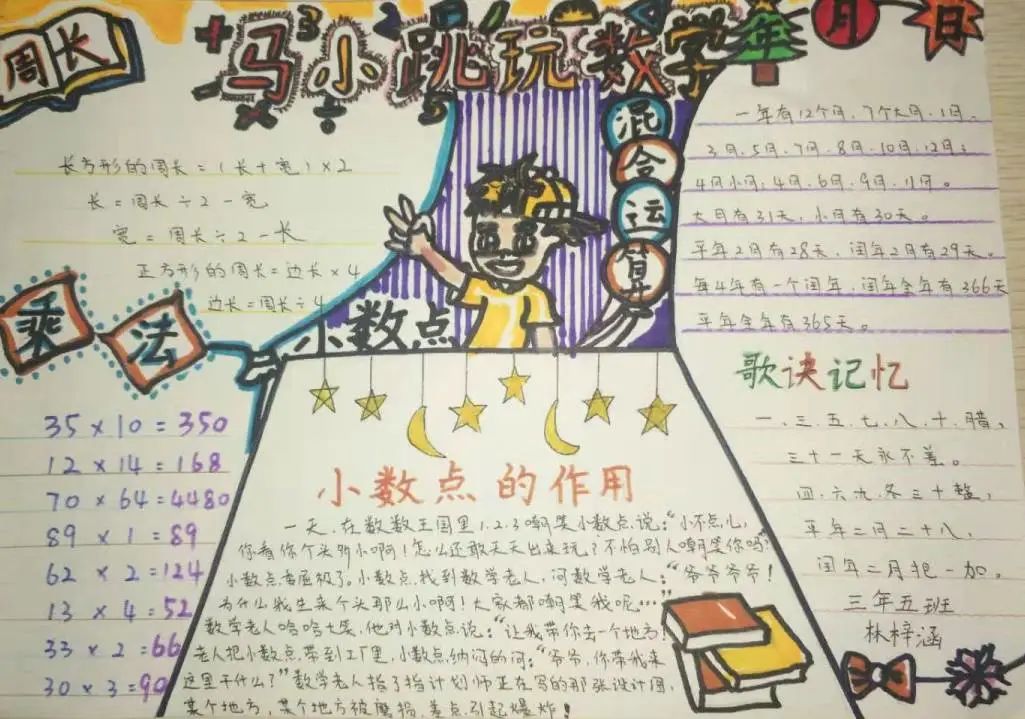 马小跳玩数学
周长
长方形的周长=(长+宽)×2
长=周长÷2-宽
宽=周长÷2-长
正方形的周长=边长×4
边长=周长÷4
乘法
35×10=350
12×14=168
70×64=4480
89×1=89
62×2=124
13×4=52
33×2=66
30×3=90
混合运算
小数点
小数点的作用
一天,在数数王国里1.2.3嘲笑小数点,说:"小不点儿,
你看你个头那么小啊!怎么还敢天天出来玩?不怕别人嘲笑你吗?
小数点委屈极了,小数点,找到数学老人,问数学老人:"爷爷爷爷!
为什么我生来个头那么小啊!大家都嘲笑我呢……"
数学老人哈哈大笑,他对小数点说:"让我带你去一个地方!
老人把小数点,带到工厂里,小数点纳闷的问:"爷爷,你带我来
这里干什么?"数学老人指了指计划师正在写的那张设计图,
某个地方,某个地方被磨损,差点引起爆炸!
年月日
一年有12个月,7个大月,1月、
3月、5月、7月、8月、10月、12月;
4月小月:4月、6月、9月、11月。
大月有31天,小月有30天。
平年2月有28天,闰年2月有29天。
每4年有一个闰年,闰年全年有366天
平年全年有365天。
歌诀记忆
一、三、五、七、八、十、腊,
三十一天永不差。
四、六、九、冬三十整,
平年二月二十八,
闰年二月把一加。
三年五班
林梓涵